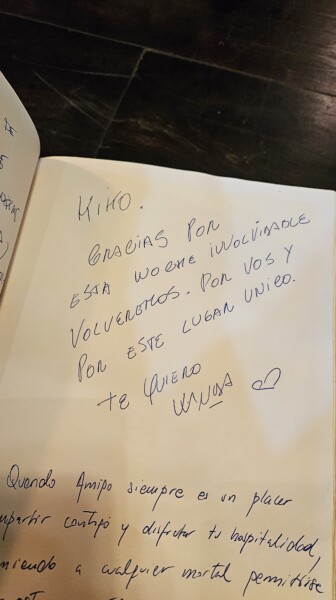 KIKO.
GRACIAS POR
ESTA NOCHE INOLVIDABLE
VOLVEREMOS. POR VOS Y
POR ESTE LUGAR UNICO.
TE QUIERO
Querido Amigo siempre es un placer
compartir contigo y disfrutar tu hospitalidad,
a cualquier mortal permitirse